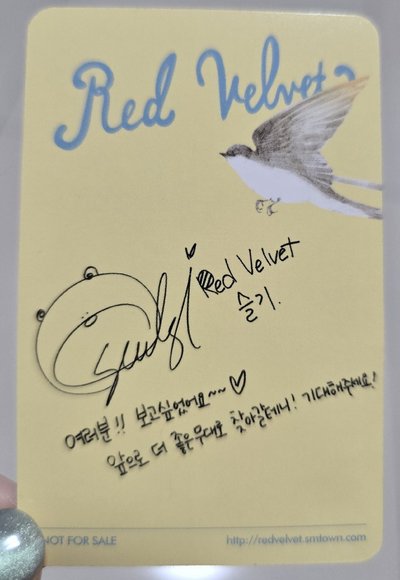 Red Velvet
Seulgi
Red Velvet
슬기.
여러분!! 보고싶었어요~~ ♡
앞으로 더 좋은무대로 찾아갈테니! 기대해주세요!
NOT FOR SALE
http://redvelvet.smtown.com